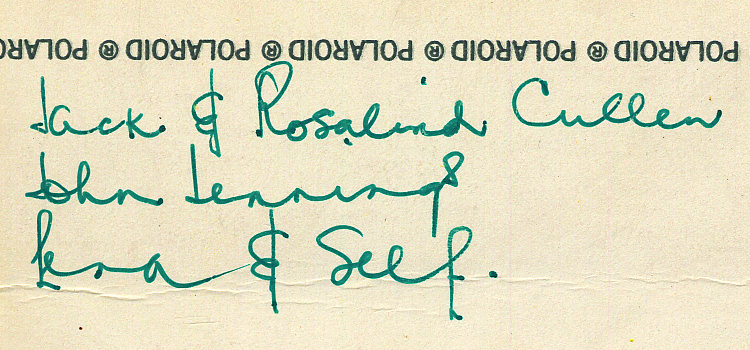 POLAROID ® POLAROID ® POLAROID ® POLAROID ® POLARO
Jack & Rosalind Cullen
John Jennings
& Self.